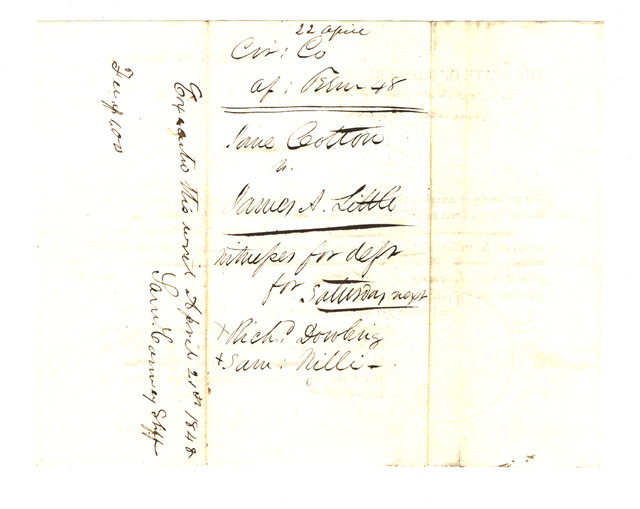 22 April
Cir: Co
Ap: Term 48
Jane Cotton
v.
James A. Little
Witnesses for deft
for Saturday next
+ Richd. Dowling
+ Sam: Nilli
Executed this writ April 21st 1848
Sam. Conway Shff
Fee $1.00